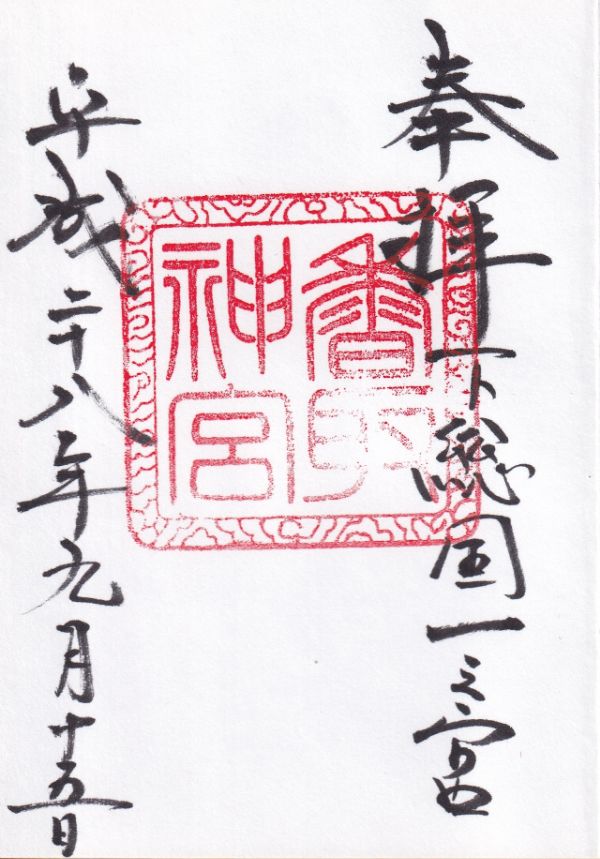 奉拝下総国一之宮
香取
神宮
平成二十八年九月十五日